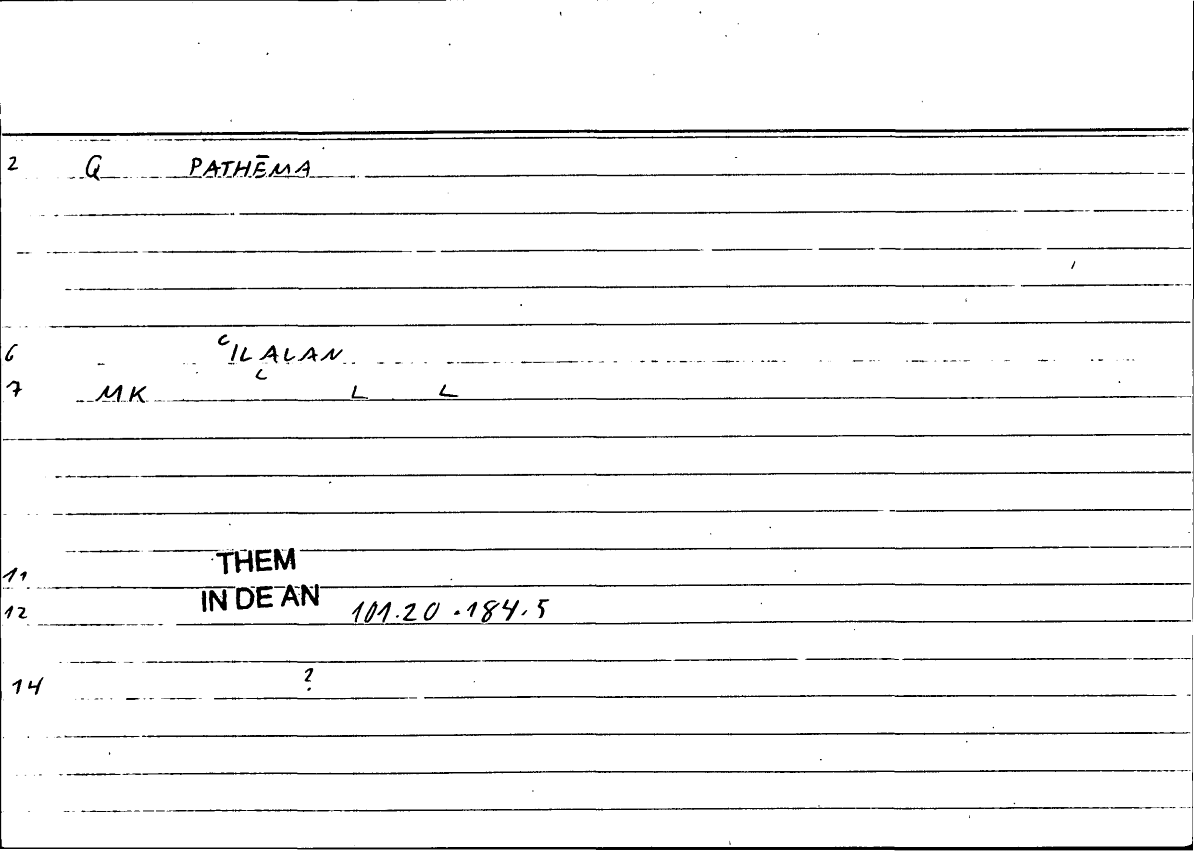 2 Q PATHĒMA
6 ʿILALAN
7 MK L L L
11 THEM
12 IN DE AN 101.20.184.5
14 ?